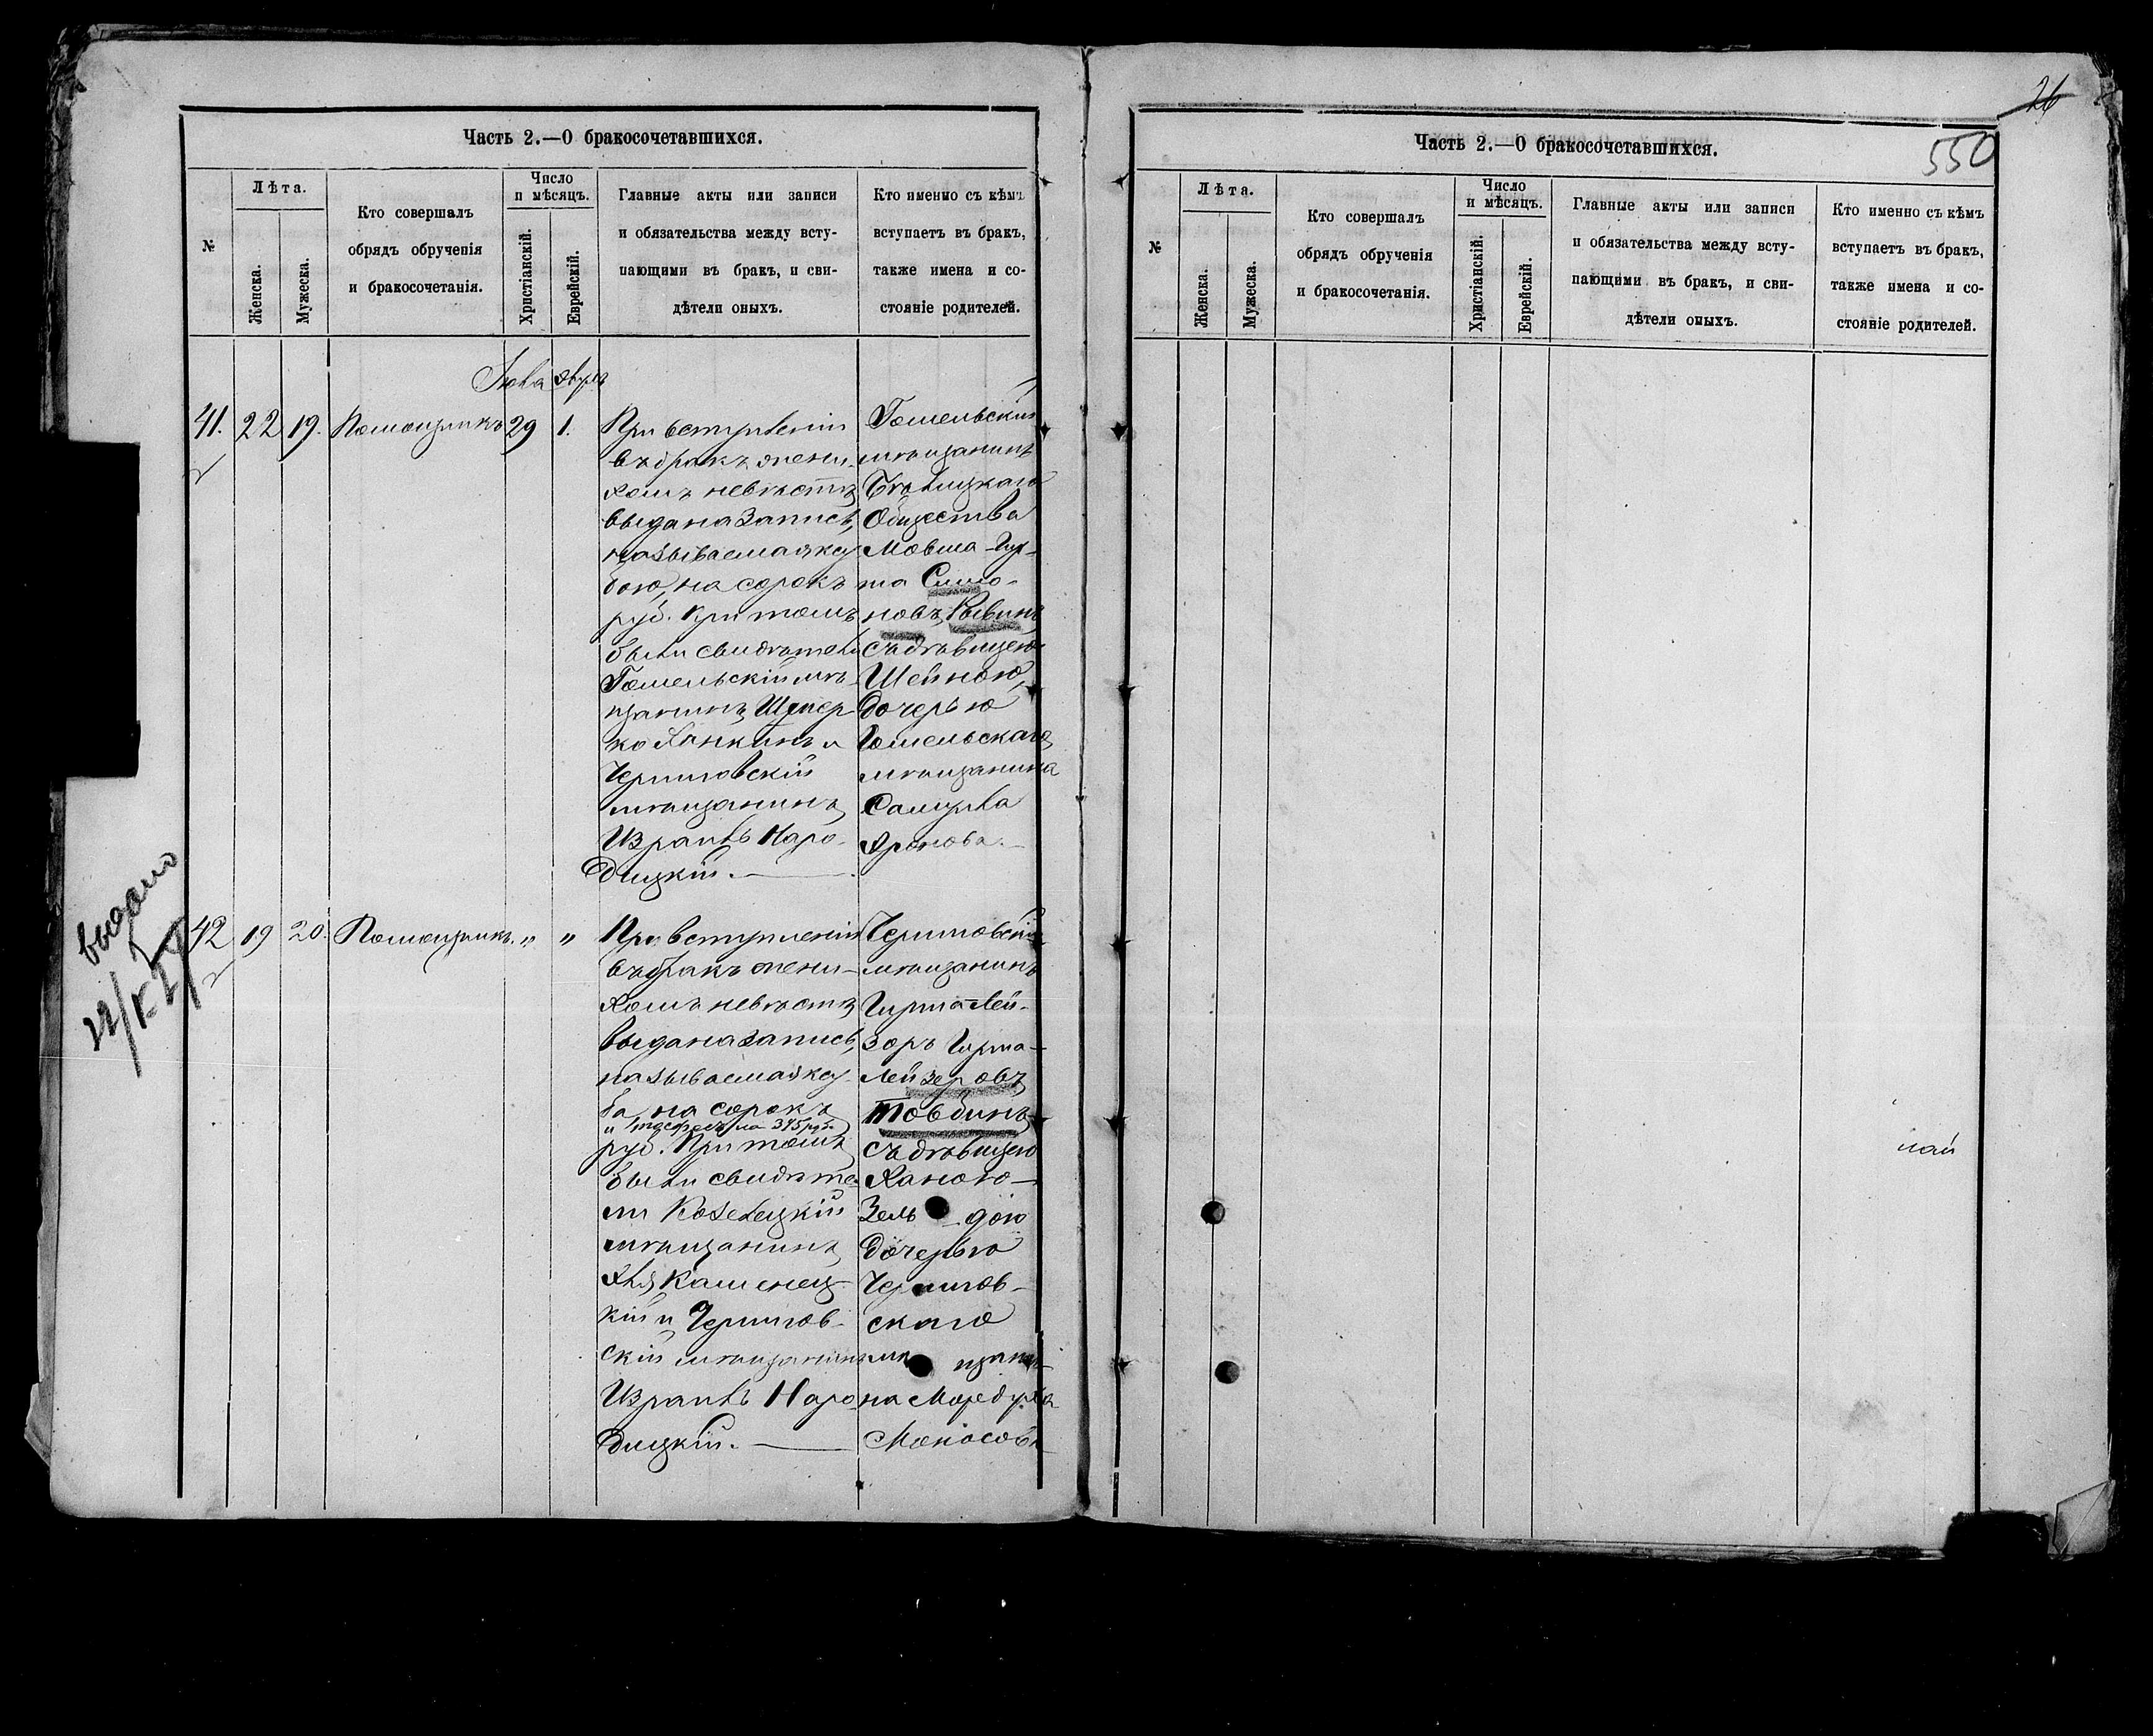 Часть 2.—О бракосочетавшихся.
№
Лѣта.
Женска.
Мужеска.
Кто совершалъ
обрядъ обрученія
и бракосочетанія.
Число
и мѣсяцъ.
Христіанскій.
Еврейскій.
Главные акты или записи
и обязательства между всту-
пающими въ бракъ, и сви-
дѣтели оныхъ.
Кто именно съ кѣмъ
вступаетъ въ бракъ,
также имена и со-
стояніе родителей.
41. 22 19. Помощникъ 29 1.
При вступленіи
въ бракъ жени-
хомъ невѣстѣ
выдана запись,
называемая ксу-
бою, на сорокъ
руб. При томъ
были свидѣтели
Гомельскій мѣ-
щанинъ
и
Черниговскій
мѣщанинъ
Израиль Наро-
дицкій.
Гомельскій
мѣщанинъ
Бѣлицкаго
Общества
Мовша
Симо-
новъ Рывкинъ
съ дѣвицею
Шейною,
дочерью
Гомельскаго
мѣщанина
Самуила
Аронова.
выдано
42 19 20. Помощникъ. " "
При вступленіи
въ бракъ жени-
хомъ невѣстѣ
выдана запись,
называемая ксу-
ба, на сорокъ
и на 345 руб.
руб. При томъ
были свидѣте-
ли Козелецкій
мѣщанинъ
Каменец-
кій и Чернигов-
скій мѣщанинъ
Израиль Наро-
дицкій.
Черниговскій
мѣщанинъ
Гирша-Лей-
зоръ Гирша-
Лейзеровъ
Товбинъ
съ дѣвицею
Ханою-
Зель-дою
дочерью
Чернигов-
скаго
мѣщани-
на Мордуха
Монасова
26
550
Часть 2.—О бракосочетавшихся.
№
Лѣта.
Женска.
Мужеска.
Кто совершалъ
обрядъ обрученія
и бракосочетанія.
Число
и мѣсяцъ.
Христіанскій.
Еврейскій.
Главные акты или записи
и обязательства между всту-
пающими въ бракъ, и сви-
дѣтели оныхъ.
Кто именно съ кѣмъ
вступаетъ въ бракъ,
также имена и со-
стояніе родителей.